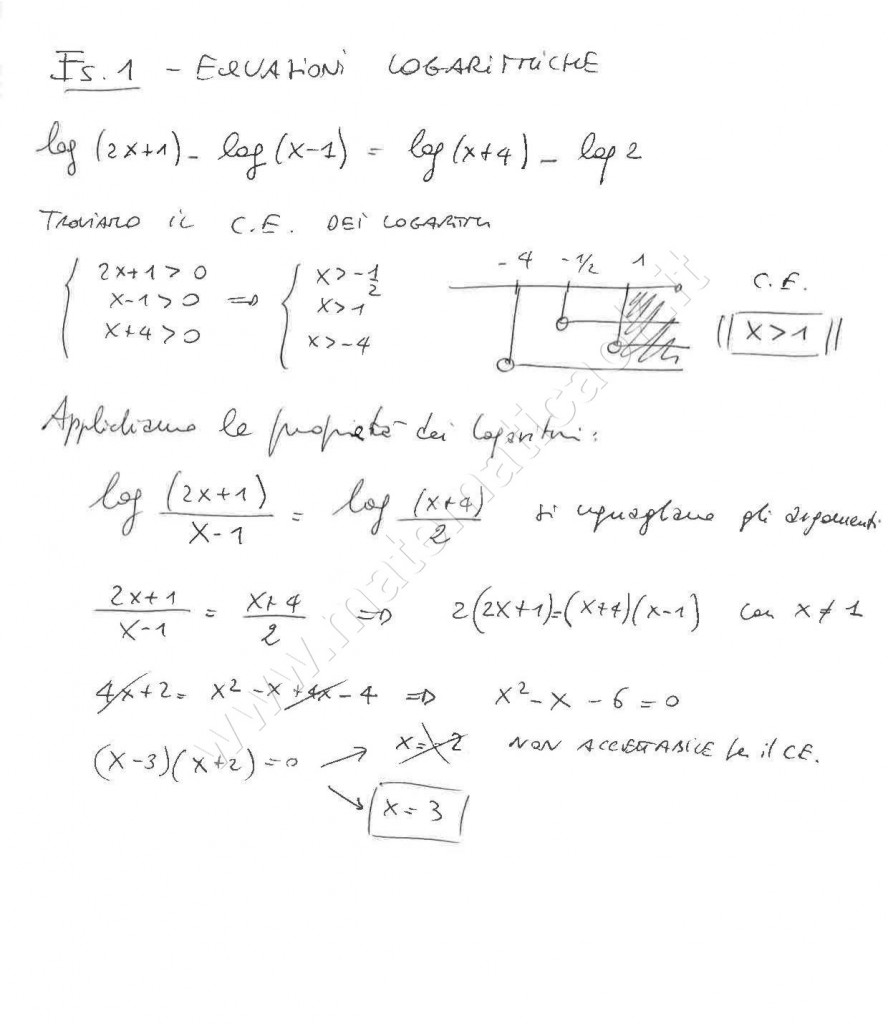 Es. 1 - EQUAZIONI LOGARITMICHE
log (2x+1) - log (x-1) = log (x+4) - log 2
TROVIAMO IL C.E. DEI LOGARITMI
{ 2x+1>0 x-1>0 x+4>0 => { x>-1/2 x>1 x>-4
-4 -1/2 1
C.E.
|| x>1 ||
Applichiamo le proprietà dei logaritmi:
log (2x+1)/(x-1) = log (x+4)/2 si uguagliano gli argomenti
(2x+1)/(x-1) = (x+4)/2 => 2(2x+1)=(x+4)(x-1) con x ≠ 1
4x+2 = x² -x +4x -4 => x² - x - 6 = 0
(x-3)(x+2)=0 x=-2 NON ACCETTABILE per il C.E.
x = 3
www.matematicaoggi.it